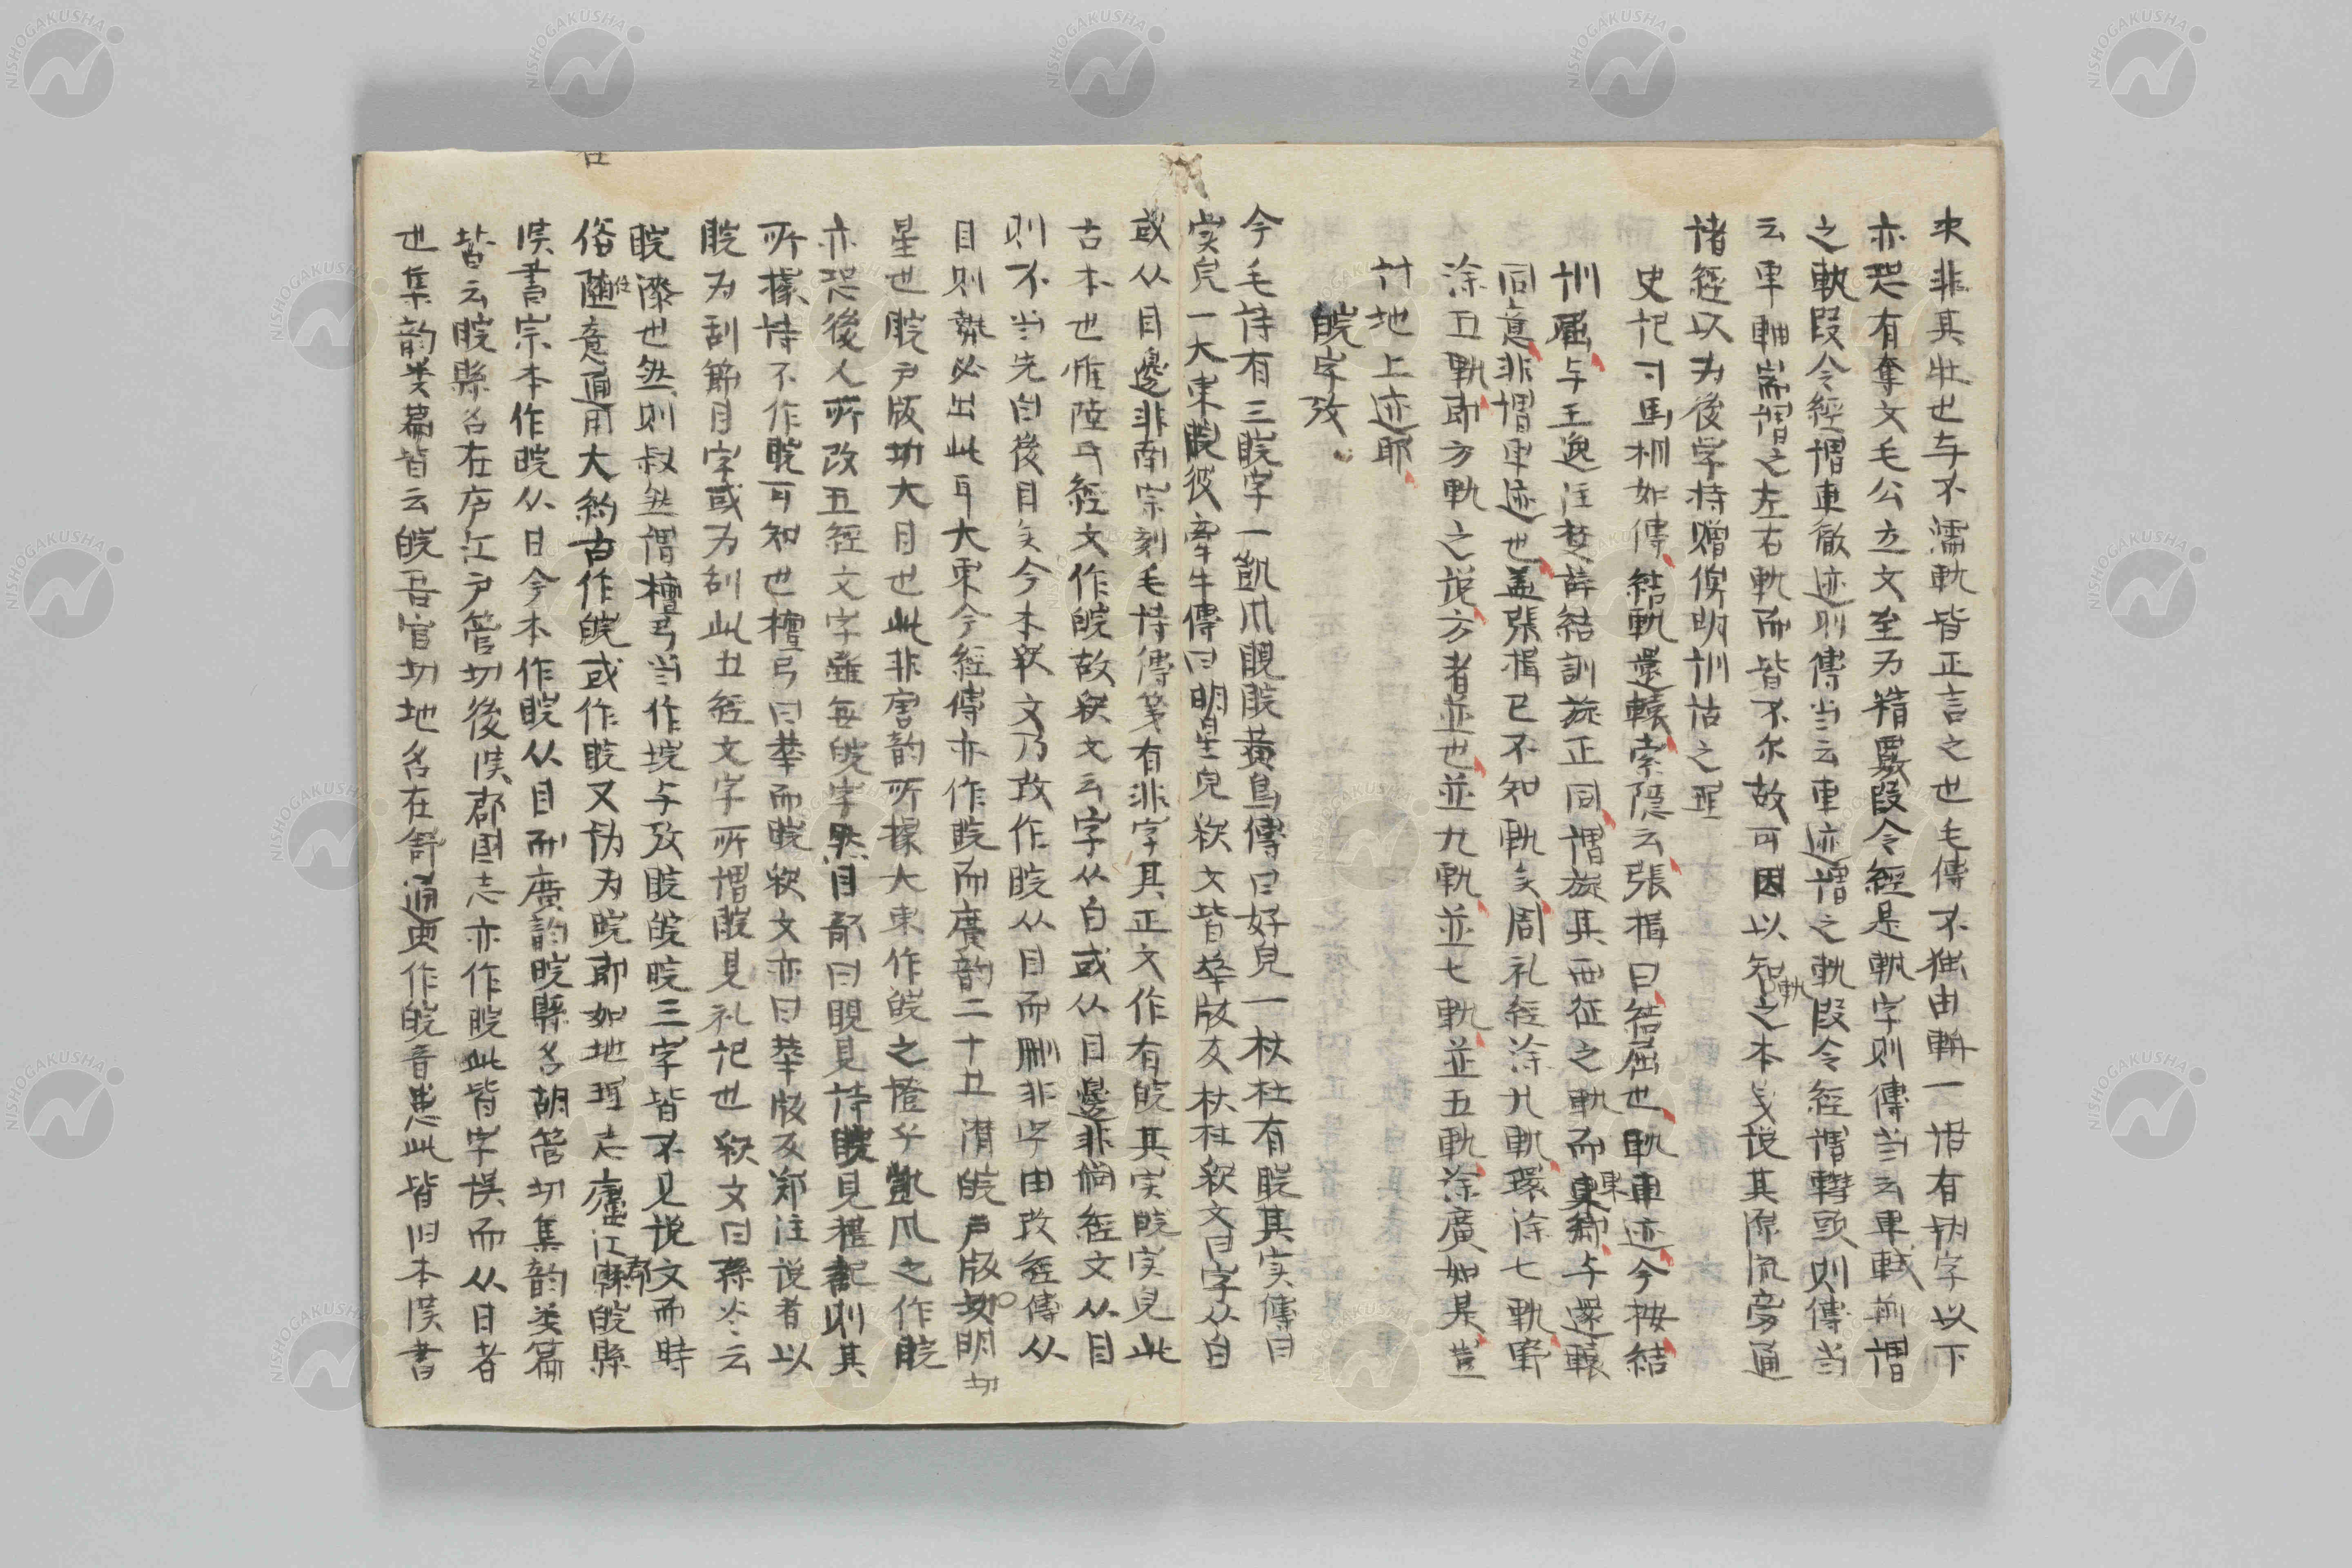 求非其牡也与不濡軌皆正言之也毛傳不独由輈一惜有輈字以下
亦恐有奪文毛公立文至为精覈叚令經是軓字則傳当云車軾前謂
之軓叚令經謂車徹迹則傳当云車迹謂之軌叚令經謂轊頭則傳当
云車軸耑謂之左右軌而皆不尔故可因以知軌之本㦮说其原流旁通
诸經以为後学持赠俟明訓诂之理
史记司馬相如傳結軌還轅索隐云張揖曰結屈也軌車迹今按結
訓屈与王逸注楚辞結訓旋正同谓旋其西征之軌而東鄉与還轅
同意非謂車迹也盖張揖已不知軌矣周礼經涂九軌環涂七軌野
涂五軌即方軌之说方者並也並九軌並七軌並五軌涂廣如是豈
计地上迹耶
皖字攷
今毛诗有三睆字一凱爪睍睆黄鳥傳曰好皃一杕杜有睆其实傳曰
实皃一大東睆彼牽牛傳曰明星皃釈文皆华版反杕杜釈文曰字从白
或从目邊非南宗刻毛诗傳箋有非字其正文作有皖其实睆实皃此
古本也惟陸氏經文作皖故釈文云字从白或从目邊非倘經文从目
則不当先白後目矣今本釈文乃改作睆从目而删非字由改經傳从
目則勢必出此耳大東今經傳亦作睆而廣韵二十五潸皖户版切明
星也睆户版切大目也此非唐韵所據大東作皖之證乎凱爪之作睆
亦恐後人所改五經文字雖無皖字然目部曰睍見诗睆見禮記則其
所據诗不作睆可知也檀弓曰華而睆釈文亦曰华版反郑注说者以
睆为刮節目字或为刮此五經文字所謂睆見礼记也釈文曰孫炎云
睆漆也然則叔然謂檀弓当作垸与攷睆皖晥三字皆不見说文而時
俗随意通用大約古作皖或作睆又譌为晥即如地理志廬江郡皖縣
漢書宗本作晥从日今本作睆从目而廣韵晥縣名胡管切集韵类篇
皆云睆縣名在庐江户管切後漢郡國志亦作睆此皆字误而从日者
也集韵类篇皆云皖吾官切地名在舒通典作皖音患此皆旧本漢書